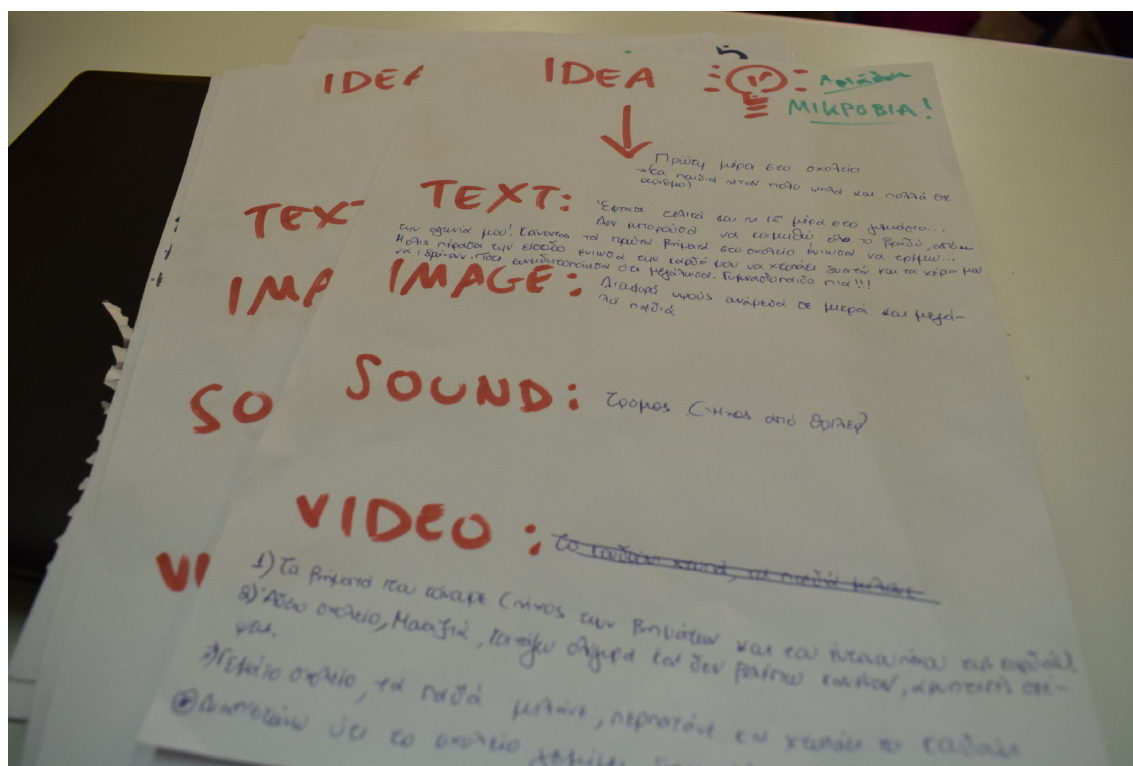 IDEA
IDEA
ΜΙΚΡΟΒΙΑ!
Πρώτη μέρα στο σχολείο
→ τα παιδιά ήταν πολύ ψηλά και πολλά σε
αριθμό)
TEXT:
TEXT
Έφτασε επιτέλους και η 1η μέρα στο γυμνάσιο...
Δεν μπορούσα να κοιμηθώ όλο το βράδυ, από
την αγωνία μου! Κάνοντας τα πρώτα βήματα στο σχολείο ένιωσα να τρέμω...
Μόλις πέρασα την είσοδο ένιωσα την καρδιά μου να χτυπάει δυνατά και τα χέρια μου
να ιδρώνουν. Τότε συνειδητοποίησα ότι μεγάλωσα. Γυμνασιόπαιδο πια!!!
IMAGE:
IMA
Διαφορά ύψους ανάμεσα σε μικρά και μεγά-
λα παιδιά
SOUND:
SO
τρόμος (ήχος από θρίλερ)
VIDEO:
VI
1) Τα βήματα που κάναμε (ήχος των βημάτων και του
2) Άδειο σχολείο, γρήγορα και δεν βλέπω κανέναν,
3) Γεμάτο σχολείο, τα παιδιά μιλάνε, περπατάνε και χτυπάει το κουδούνι
ότι το σχολείο